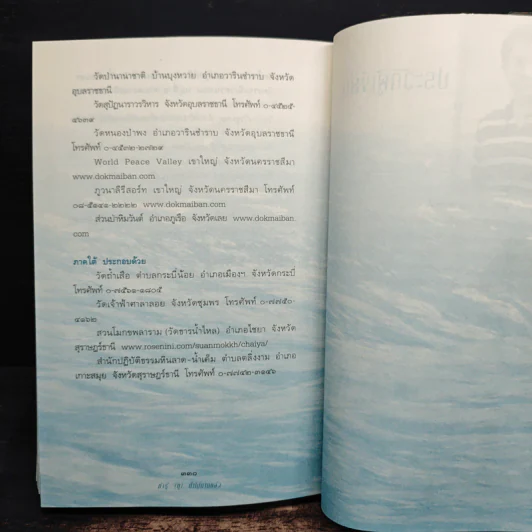 วัดป่านานาชาติ บ้านบุงหวาย อำเภอวารินชำราบ จังหวัด
อุบลราชธานี
วัดสุปัฏนารามวรวิหาร จังหวัดอุบลราชธานี โทรศัพท์ ๐-๔๕๒๕-
๔๖๓๑
วัดหนองป่าพง อำเภอวารินชำราบ จังหวัดอุบลราชธานี
โทรศัพท์ ๐-๔๕๗๒-๒๗๒๑
World Peace Valley เขาใหญ่ จังหวัดนครราชสีมา
www.dokmaiban.com
ภูวนาลีรีสอร์ท เขาใหญ่ จังหวัดนครราชสีมา โทรศัพท์
๐๘-๕๑๔๑-๒๒๒๒ www.dokmaiban.com
สวนป่าหิมวันต์ อำเภอภูเรือ จังหวัดเลย www.dokmaiban.
com
ภาคใต้ ประกอบด้วย
วัดถ้ำเสือ ตำบลกระบี่น้อย อำเภอเมืองฯ จังหวัดกระบี่
โทรศัพท์ ๐-๗๕๖๑-๑๘๐๕
วัดเจ้าฟ้าศาลาลอย จังหวัดชุมพร โทรศัพท์ ๐-๗๗๕๐-
๔๑๖๒
สวนโมกขพลาราม (วัดธารน้ำไหล) อำเภอไชยา จังหวัด
สุราษฎร์ธานี www.rosenini.com/suanmokkh/chaiya/
สำนักปฏิบัติธรรมหินลาด-น้ำเต็ม ตำบลตลิ่งงาม อำเภอ
เกาะสมุย จังหวัดสุราษฎร์ธานี โทรศัพท์ ๐-๗๗๔๒-๓๑๔๖
๓๓๐